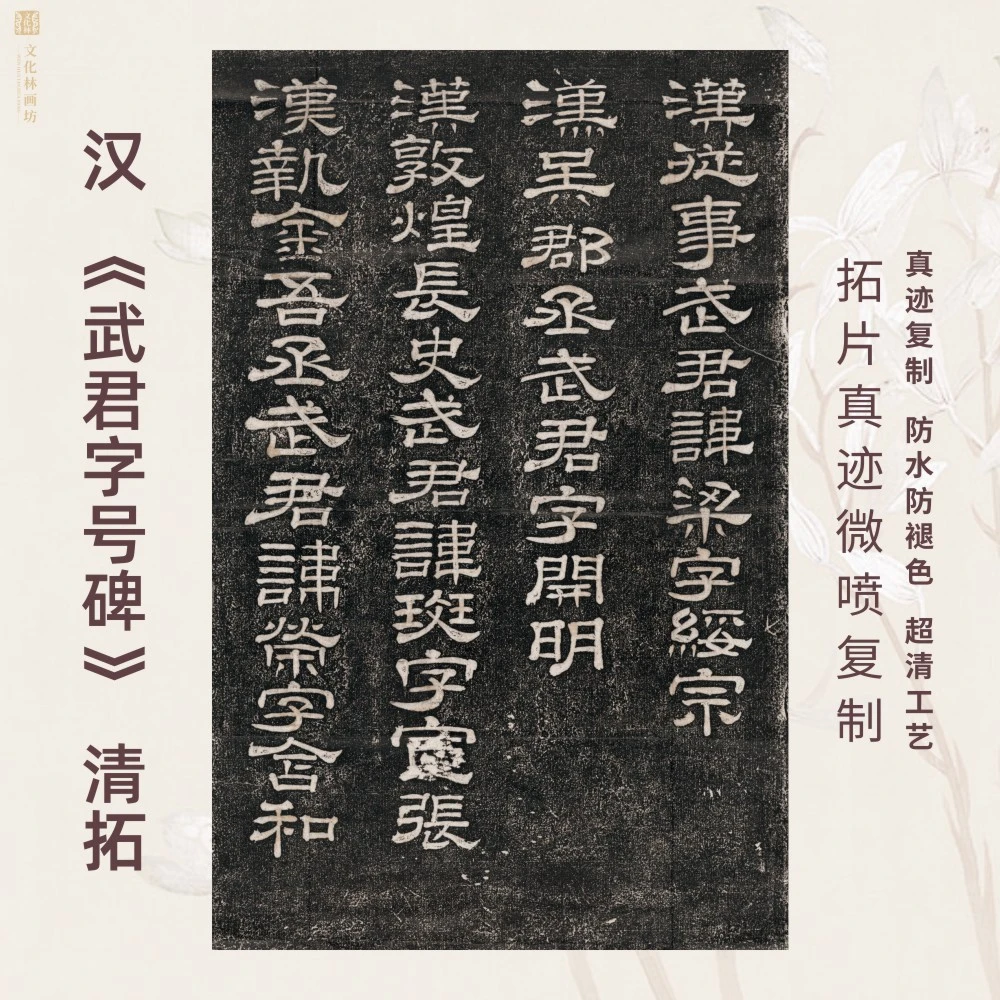 文化林画坊
真迹复制 防水防褪色 超清工艺
拓片真迹微喷复制
漢從事武君諱梁字綏宗
漢吴郡丞武君字開明
漢敦煌長史武君諱斑字宣張
漢執金吾丞武君諱榮字含和
汉《武君字号碑》 清拓